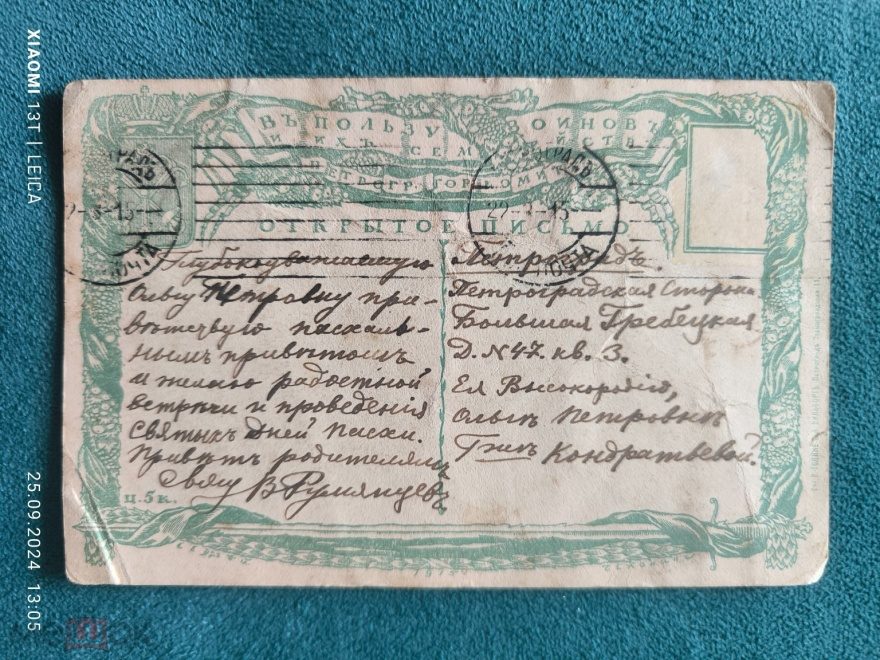 XIAOMI 13T | LEICA
25.09.2024 13:05
ВЪ ПОЛЬЗУ ВОИНОВЪ
И ИХЪ СЕМЕЙСТВЪ
ПЕТРОГР. ГОР. КОМИТ.
ОТКРЫТОЕ ПИСЬМО
22- -15
ПОЧТА
22- -15
ПОЧТА
Глубокоуважаемую
Ольгу Петровну при-
вѣтствую пасхаль-
нымъ привѣтомъ
и желаю радостной
встрѣчи и проведенія
Святыхъ Дней Пасхи.
Привѣтъ родителямъ
В Румянцевъ
ц. 5 к.
Петроградъ.
Петроградская Сторона
Большая Гребецкая
Д. N 47. кв. 3.
Ея Высокородію,
Ольгѣ Петровнѣ
Г-жѣ Кондратьевой.